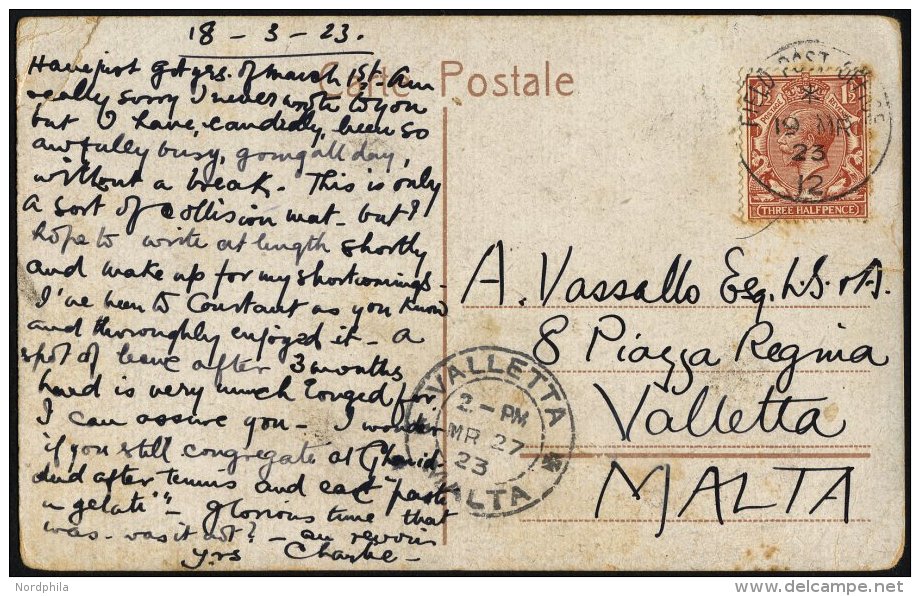 18 - 3 - 23.
Carte Postale
Have just got yrs. of March 1st. Am
really sorry I never wrote to you
but I have, candidly, been so
awfully busy, going all day,
without a break. This is only
a sort of collision mat - but I
hope to write at length shortly
and make up for my shortcomings.
I've been to Constant as you know
and thoroughly enjoyed it - a
spot of leave after 3 months
hard is very much longed for
I can assure you - I wonder
if you still congregate at
after tennis and eat "paste
gelati" - glorious time that
was - was it not? - au revoir
yrs Charlie -
FIELD POST OFFICE
19 MR
23
12
THREE HALFPENCE
A. Vassallo Esq. L.S. &A.
8 Piazza Regina
Valletta
MALTA
VALLETTA
2 - PM
MR 27
23
MALTA
Nordphila
delcampe.net